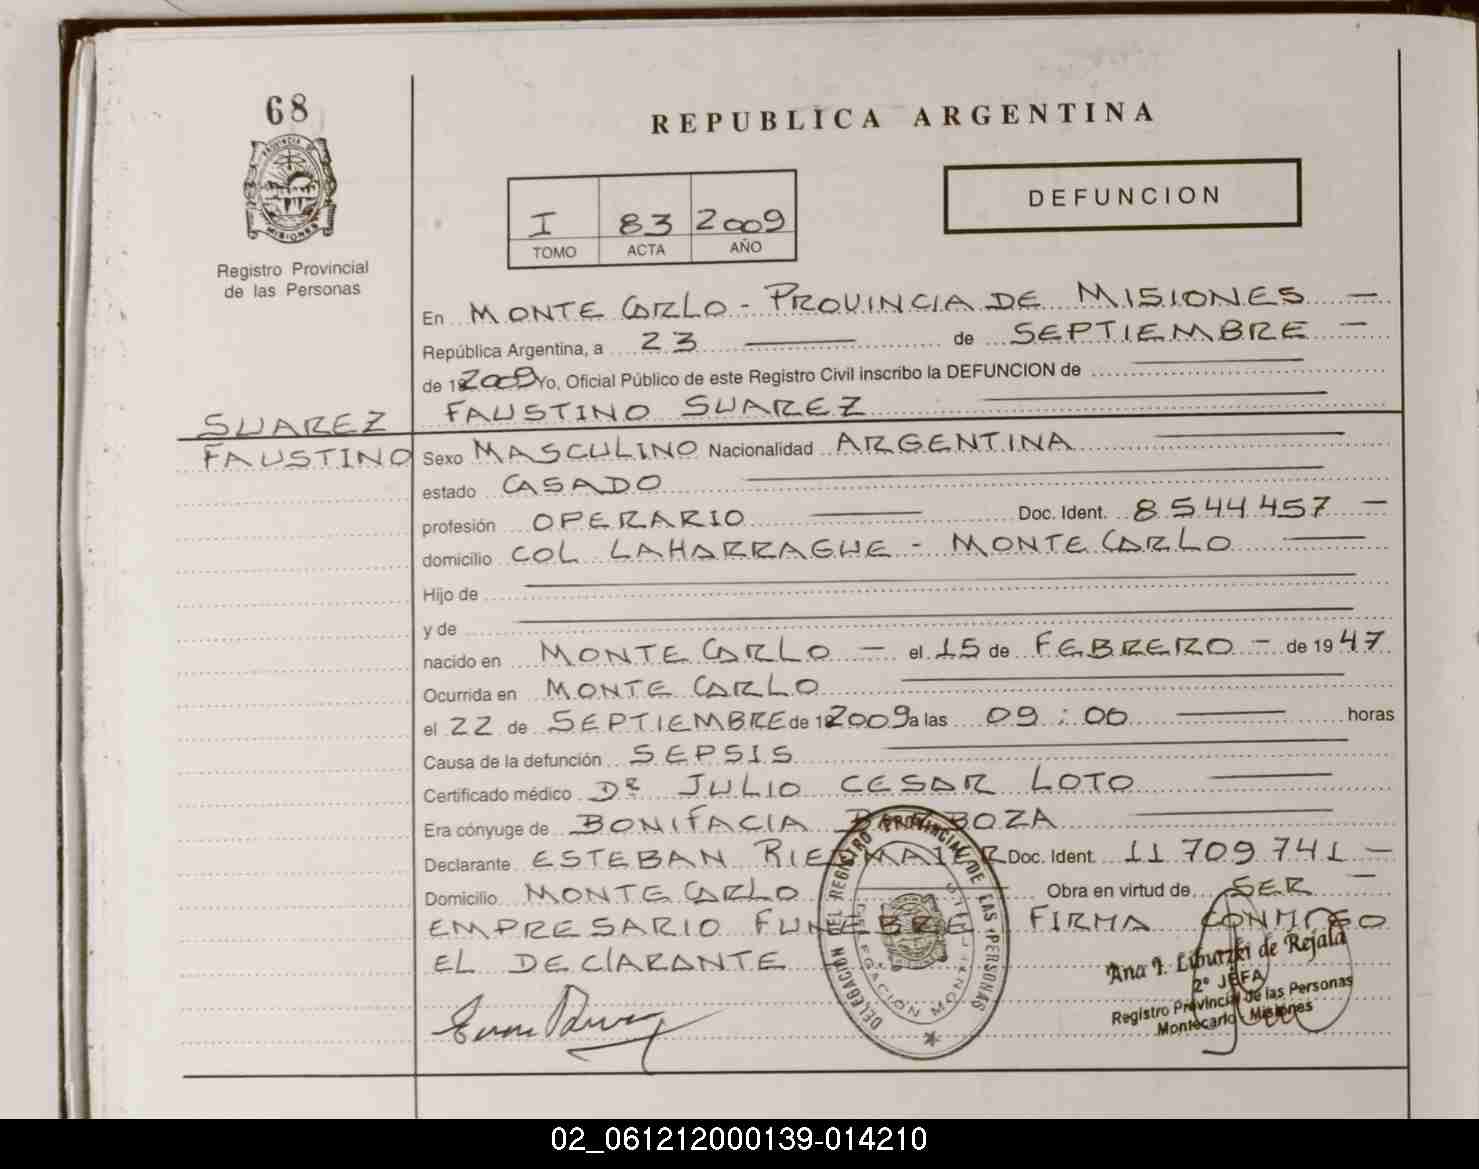 68
PROVINCIA DE
MISIONES
Registro Provincial
de las Personas
REPUBLICA ARGENTINA
I 83 2009
TOMO ACTA AÑO
DEFUNCION
En MONTE CARLO - PROVINCIA DE MISIONES -
República Argentina, a 23 de SEPTIEMBRE -
de 2009 Yo, Oficial Público de este Registro Civil inscribo la DEFUNCION de
FAUSTINO SUAREZ
SUAREZ
FAUSTINO
Sexo MASCULINO Nacionalidad ARGENTINA
estado CASADO
profesión OPERARIO Doc. Ident. 8544457 -
domicilio COL LAHARRAGUE - MONTE CARLO
Hijo de
y de
nacido en MONTE CARLO - el 15 de FEBRERO - de 1947
Ocurrida en MONTE CARLO
el 22 de SEPTIEMBRE de 2009 a las 09:00 horas
Causa de la defunción SEPSIS
Certificado médico Dr JULIO CESAR LOTO
Era cónyuge de BONIFACIA BARBOZA
Declarante ESTEBAN Doc. Ident. 11709741 -
Domicilio MONTE CARLO Obra en virtud de SER -
EMPRESARIO FUNEBRE FIRMA CONMIGO
EL DECLARANTE
DELEGACION DEL REGISTRO PROVINCIAL DE LAS PERSONAS
Ana I. de Rejala
2º JEFA
Registro Provincial de las Personas
Montecarlo Misiones
02_061212000139-014210